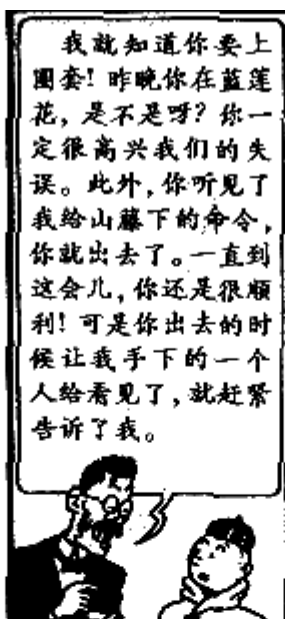 我就知道你要上
圈套！昨晚你在蓝莲
花，是不是呀？你一
定很高兴我们的失
误。此外，你听见了
我给山藤下的命令，
你就出去了。一直到
这会儿，你还是很顺
利！可是你出去的时
候让我手下的一个
人给看见了，就赶紧
告诉了我。